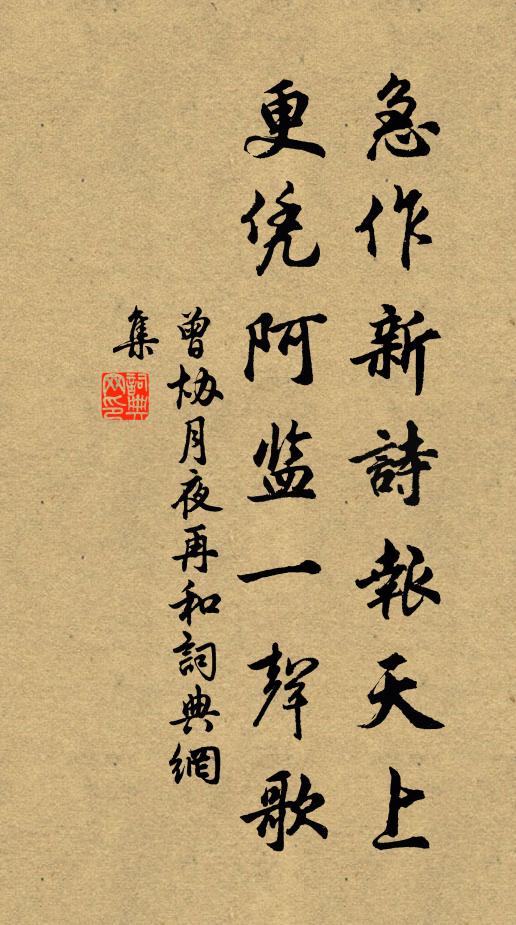 急作新詩報天上
更凭阿监一聲歌
曾协月夜再和詞典網
集
詞典
网印